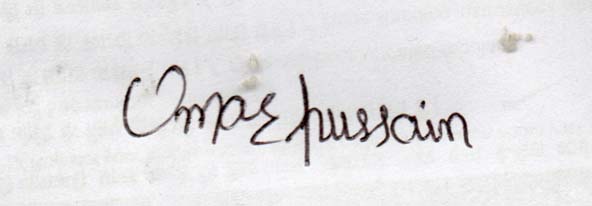 Omar Hussain